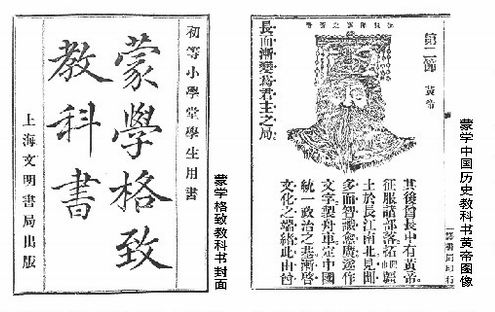 初等小學堂學生用書
蒙學格致
教科書
上海文明書局出版
蒙学格致教科书封面
第二節 黃帝
其後酋長中有黃帝。
征服諸部落拓
土於長江南北見聞
多而智識愈廣遂作
文字製舟車定中國
統一政治之基漸啓
文化之端緒此由酋
長而漸變爲君主之局
蒙学中国历史教科书黄帝图像